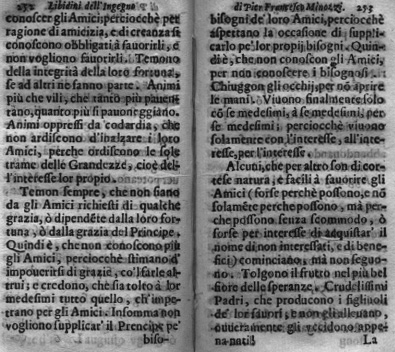 252 Libidini dell'Ingegno
scer gli Amici, perciocchè per
ragione di amicizia, e di creanza si
conoscono obbligati à fauorirli, e
non vogliono fauorirli. Temono
della integrità della loro fortuna,
se ad altri ne fanno parte. Animi
più che vili, che tanto più pauen-
tano, quanto più si pauoneggiano.
Animi oppressi da codardia, che
non ardiscono d'inalzare i loro
Amici, perche ordiscono le sole
trame delle Grandezze, cioè del-
l'interesse lor proprio.
Temon sempre, che non siano
da gli Amici richiesti di qualche
grazia, ò dipendẽte dalla loro for-
tuna, ò dalla grazia del Principe.
Quindi è, che non conoscono più
gli Amici, perciocchè stimano d'
impouerirsi di grazie, co'l farle al-
trui; e credono, che sia tolto à lor
medesimi tutto quello, ch'impe-
trano per gli Amici. Insomma non
vogliono supplicar'il Prencipe pe'
biso-
di Pier Francesco Minozzi. 253
bisogni de' loro Amici, perciocchè
aspettano la occasione di suppli-
carlo pe' lor propij bisogni. Quin-
di è, che non conoscon gli Amici,
per non conoscere i bisognosi.
Chiuggon gli occhij, per nõ aprire
le mani. Viuono finalmente solo
cõ se medesimi, à se medesimi, per
se medesimi; perciocchè viuono
solamente con l'interesse, all'inte-
resse, per l'interesse.
Alcuni, che per altro son di cor-
tese natura, e facili à fauorire gli
Amici (forse perchè possono, e nõ
solamẽte perche possono, mà per-
che possono senza scommodo, ò
forse per interesse di adquistar' il
nome di non interessati, e di bene-
fici) cominciano, mà non seguo-
no. Tolgono il frutto nel più bel
fiore delle speranze. Crudelissimi
Padri, che producono i figlinoli
de' lor fauori, e non gli alleuano,
ouueramente gli vccidono appe-
na nati.
La